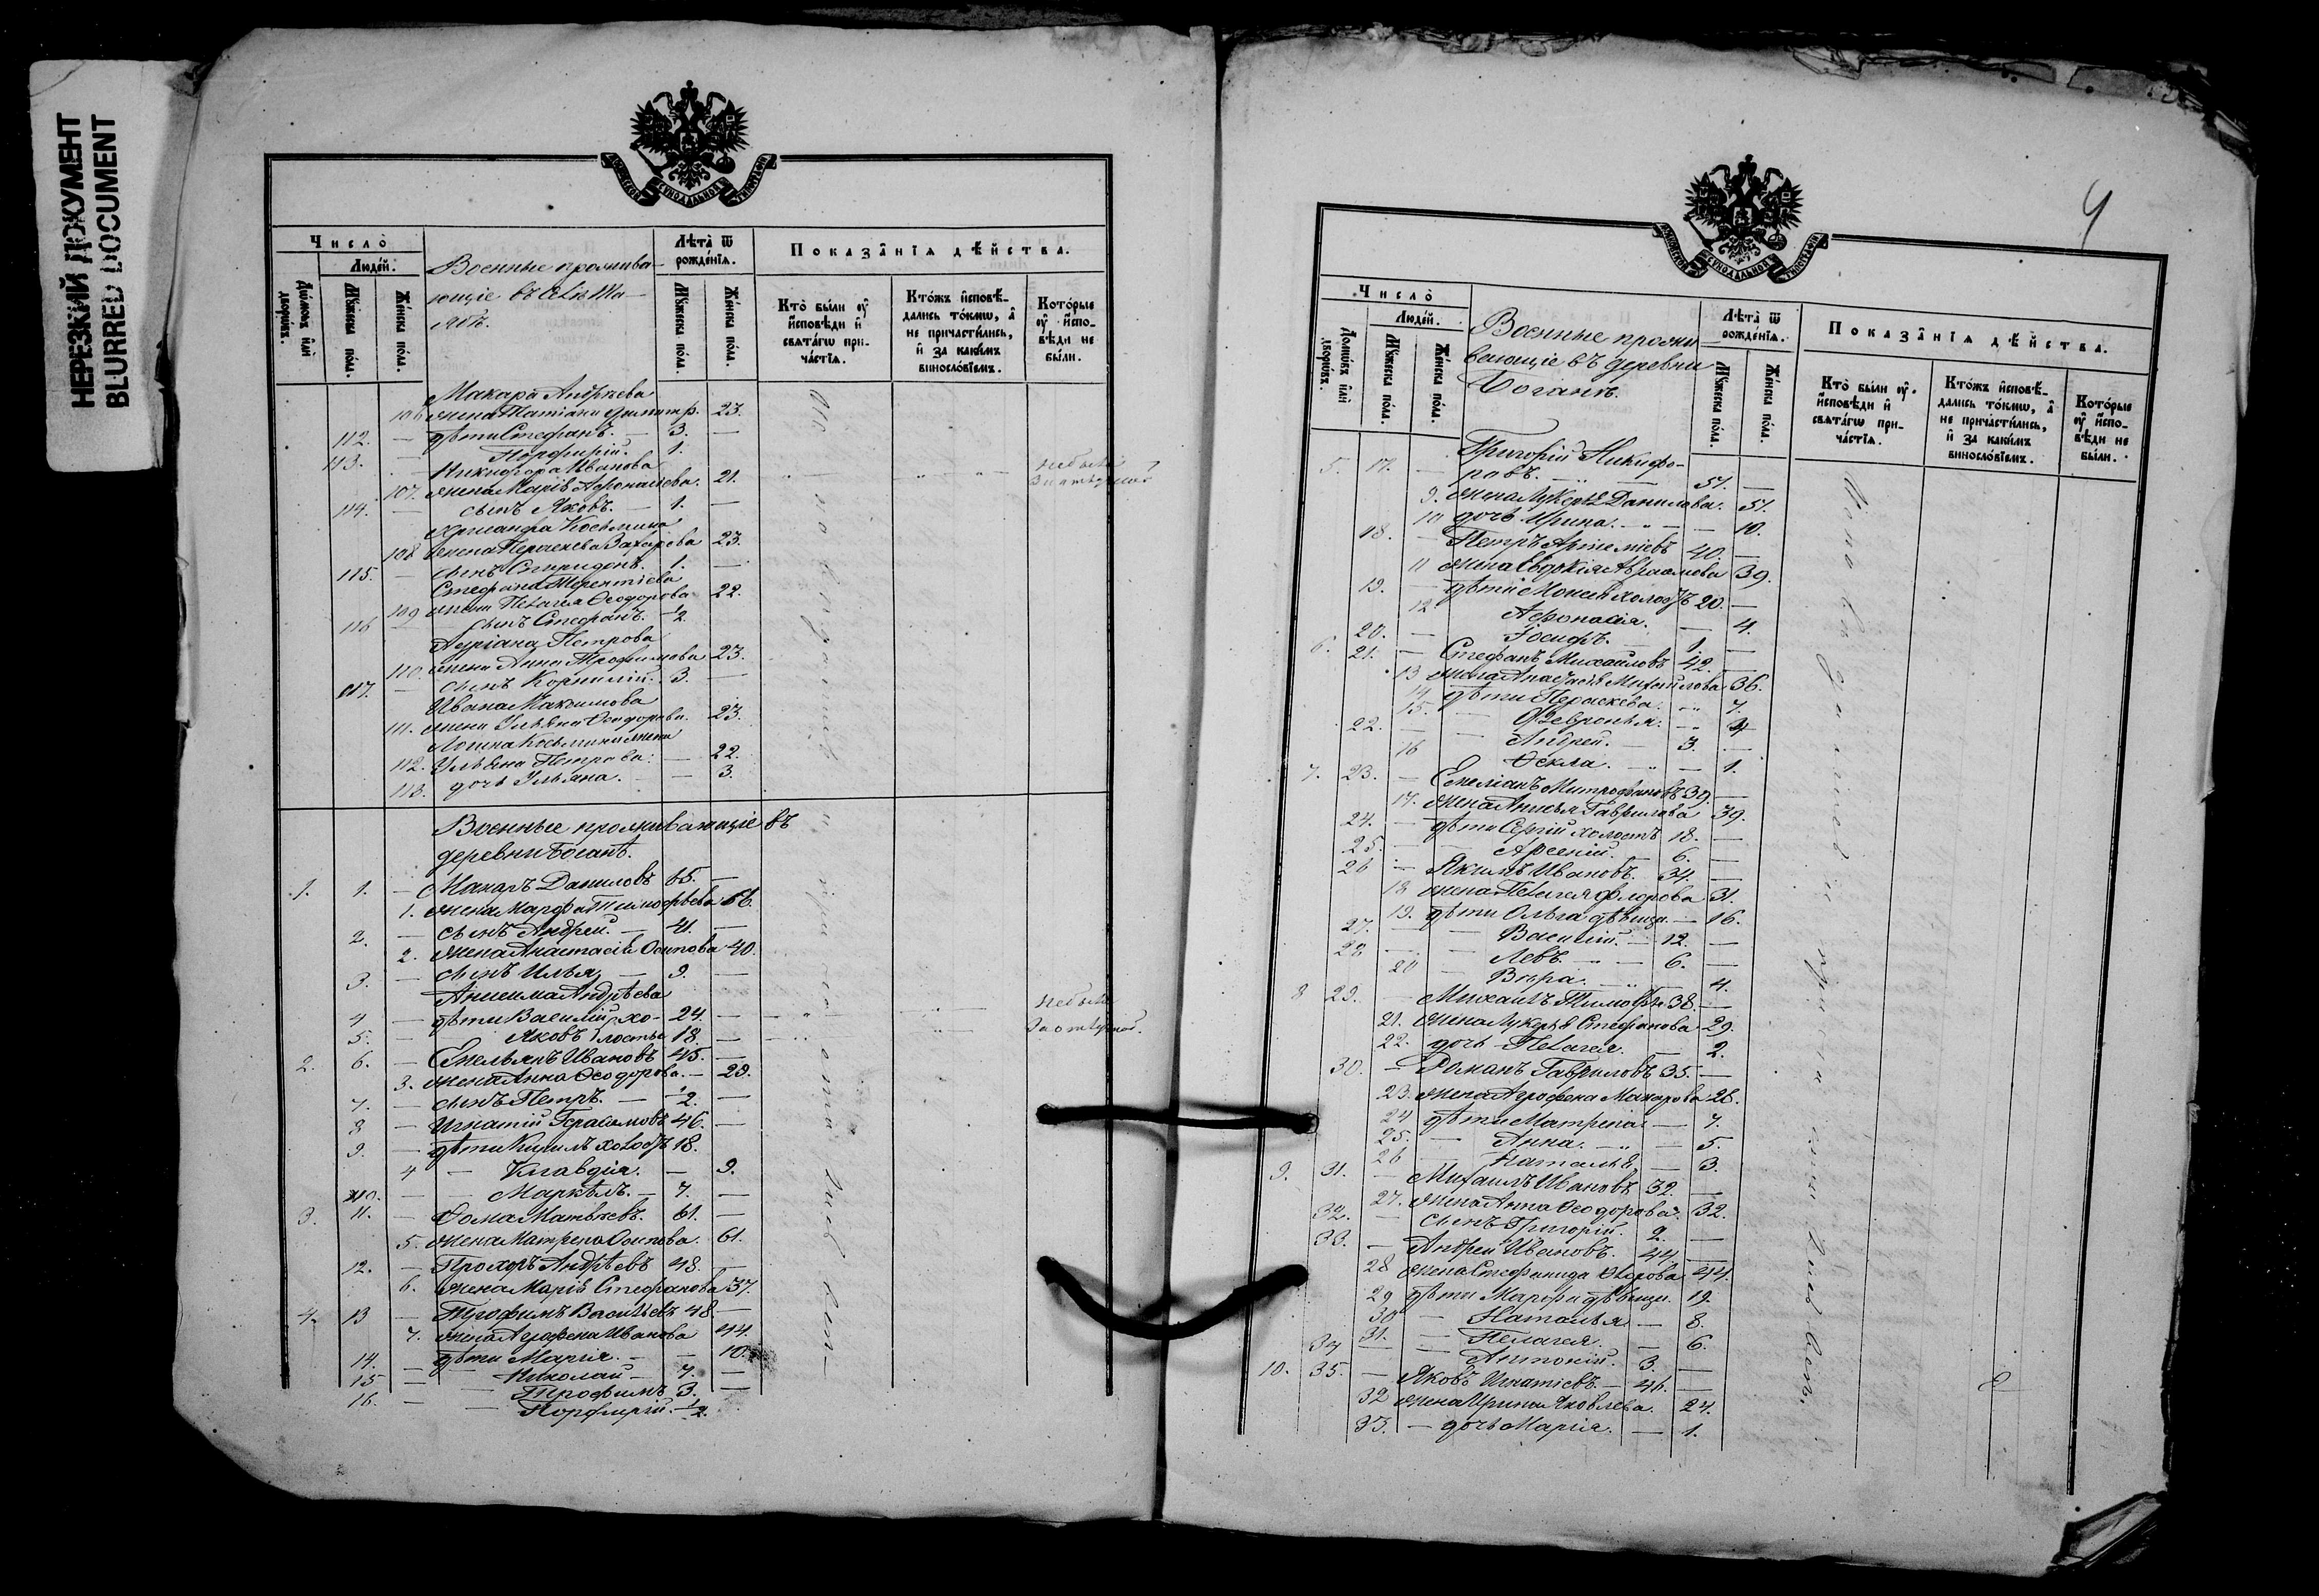 НЕРЕЗКИЙ ДОКУМЕНТ
BLURRED DOCUMENT
Число̀
Людей.
Домовъ или дворовъ.
Мужеска пола.
Женска пола.
Военные прожива-
ющіе въ селѣ
Лѣта ѿ рожденїѧ.
Мужеска пола.
Женска пола.
Показанїѧ дѣйства.
Кто были оу исповѣди и свѧтагѡ при-
частїѧ.
Ктожъ исповѣ-
дались токмѡ, а
не причастились,
и за какимъ
винословїемъ.
Которые
оу испо-
вѣди не
были.
Макара Андрѣева
106 жена Татіана Димитр. 23.
112. — дѣти Стефанъ. — 3. —
113. — Порфирій. 1.
Никифора Иванова
107. жена Марія Афонасьева. 21.
114. — сынъ Яковъ. — 1. —
Косьмина
108 жена Параскева Захарова 23.
115. — сынъ Спиридонъ. 1. —
Стефана Терентіева
109 жена Пелагея Ѳеодорова 22.
116 — сынъ Стефанъ. ½
Адріана Петрова
110. жена Анна Трофимова 23.
117. — сынъ Корнилій. 3. —
Ивана Максимова
111. жена Ульяна Ѳеодорова. 23.
Косьмина жена
112. Ульяна Петрова. — 22.
113. дочь Ульяна. — 3.
Военные проживающіе въ
деревни Боганѣ.
1. 1. — Макаръ Даниловъ 65. —
1. жена Марфа Тимофѣева 66.
2. — сынъ Андрей. — 41. —
2. жена Анастасія Осипова 40.
3. — сынъ Илья — 9. —
Анисима Андрѣева
4 — дѣти Василій хо- 24 —
5. — Яковъ лостые 18. —
2. 6. — Емельянъ Ивановъ 45. —
3. жена Анна Ѳеодорова. — 29.
7. — сынъ Петръ. — ½. —
8 — Игнатій Герасимовъ 46. —
9. — дѣти холостъ 18.
4 — Клавдія. — 9.
10. — Маркелъ. — 7. —
3. 11. — Ѳома Матвѣевъ. 61. —
5. жена Матрена Осипова. 61.
12. — Прохоръ Андрѣевъ 48. —
6. жена Марія Стефанова 37.
4. 13 — Трофимъ Васильевъ 48 —
7. жена Агрофена Иванова 44.
14. дѣти Марія. — 10.
15 — Николай — 7. —
16. — Трофимъ 3. —
— Порфирій. ½.
4
Число̀
Людей.
Домовъ или дворовъ.
Мужеска пола.
Женска пола.
Военные прожи
вающіе въ деревни
Боганѣ.
Лѣта ѿ рожденїѧ.
Мужеска пола.
Женска пола.
Показанїѧ дѣйства.
Кто были оу исповѣди и свѧтагѡ при-
частїѧ.
Ктожъ исповѣ-
дались токмѡ, а
не причастились,
и за какимъ
винословїемъ.
Которые
оу испо-
вѣди не
были.
5. 17. — Григорій Никифо-
ровъ. 51. —
9. жена Лукерья Данилова. 51.
10 дочь Ирина. — 10.
18. — Петръ Артеміевъ 40. —
11 жена Евдокія Авраамова 39.
19. — дѣти Моисей холостъ 20. —
12 Афонасія. — 4.
20. — Іосифъ. 1. —
6. 21. — Стефанъ Михайловъ 42. —
13 жена Анастасія Михайлова 36.
14. дѣти Параскева. 7.
15. Февронья. 4
22. — Андрей. 3. —
16 Ѳекла. — 1.
7. 23. — Емеліанъ Митрофановъ 39. —
17. жена Анисья Гаврилова 39.
24. — дѣти Сергій холостъ 18. —
25. — Арсеній. — 6. —
26 — Якимъ Ивановъ. 34. —
18 жена Пелагея Флорова 31.
19. дѣти Ольга дѣвица. — 16.
27. — Василій. — 12. —
28 — Левъ. — 6. —
20 Вѣра. 4.
8 29. — Михаилъ Тимофѣ. 38. —
21. жена Лукерья Стефанова 29.
22. дочь Пелагея. — 2.
30. — Романъ Гавриловъ 35. —
23. жена Агрофена Макарова 28.
24 дѣти Матрена. — 7.
25. — Анна. — 5.
26 — Наталья — 3.
9. 31. — Михаилъ Ивановъ 32. —
27. жена Анна Ѳеодорова. 32.
32. — сынъ Григорій. 2. —
33. — Андрей Ивановъ. 44 —
28 жена Стефанида 44.
29 дѣти Марфа дѣвица. 19.
30 — Наталья — 8.
31. — Пелагея. — 6.
34 — Антоній. 3. —
10. 35. — Яковъ Игнатіевъ. — 46. —
32 жена Ирина Яковлева. 24.
33. — дочь Марія. — 1.